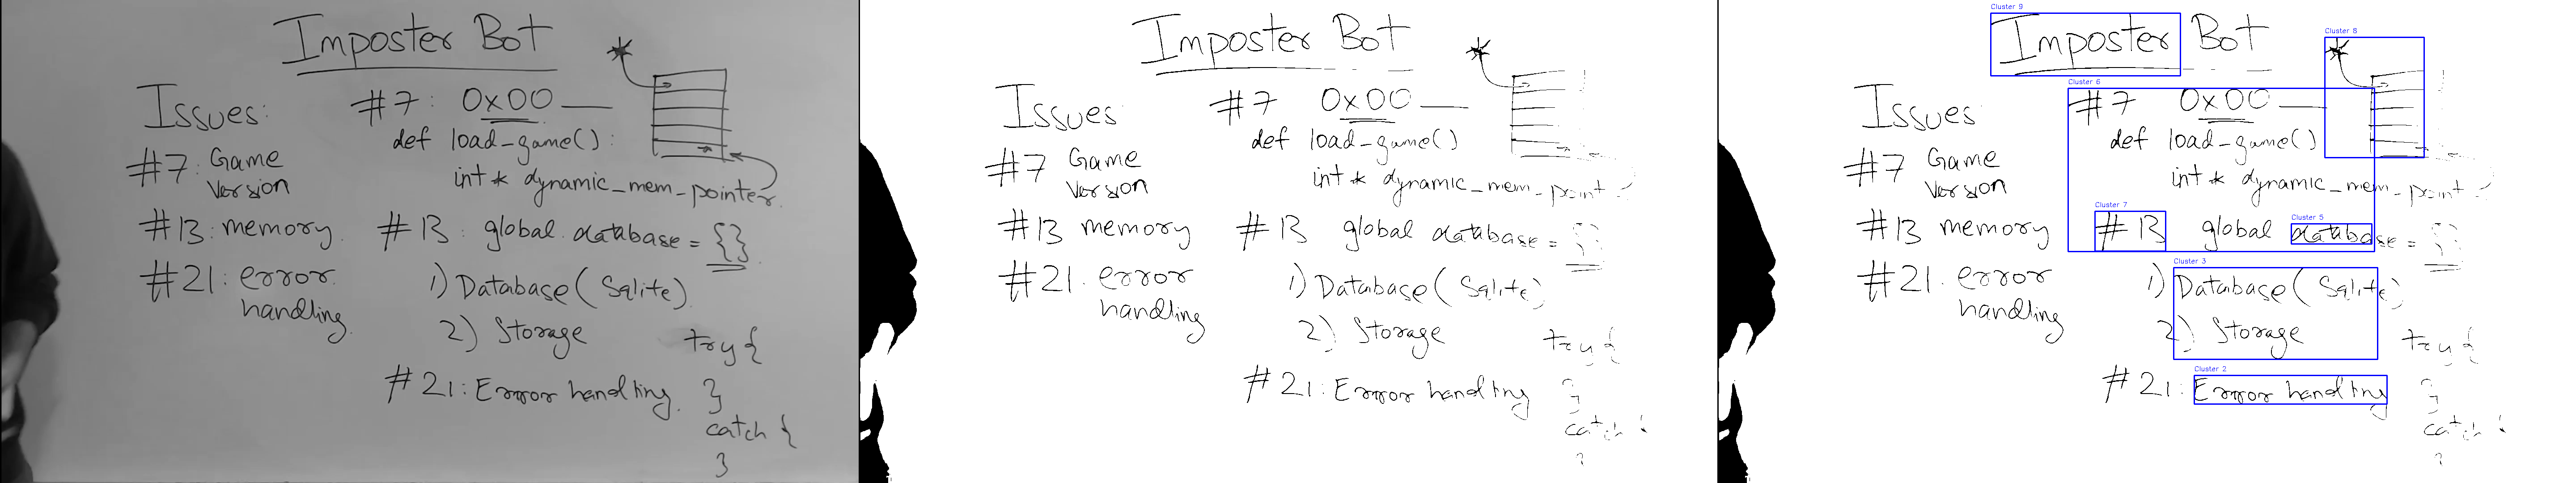 Imposter Bot
Issues:
#7: Game
Version
#13: memory
#21: error
handling
#7: 0x00
def load_game():
int * dynamic_mem_pointer
#13: global database = {}
1) Database (Sqlite)
2) Storage
#21: Error handling
try {
}
catch {
}
Imposter Bot
Issues
#7 Game
Version
#13 memory
#21. error
handling
#7 0x00
def load_game()
int * dynamic_mem_point
#13 global database = {}
1) Database (Sqlite)
2) Storage
#21: Error handling
try {
}
catch {
}
Cluster 9
Imposter Bot
Cluster 8
Issues
#7 Game
Version
#13 memory
#21. error
handling
Cluster 6
#7 0x00
def load_game()
int * dynamic_mem_point
Cluster 7
Cluster 5
#13 global database = {}
Cluster 3
1) Database (Sqlite)
2) Storage
Cluster 2
#21: Error handling
try {
}
catch {
}